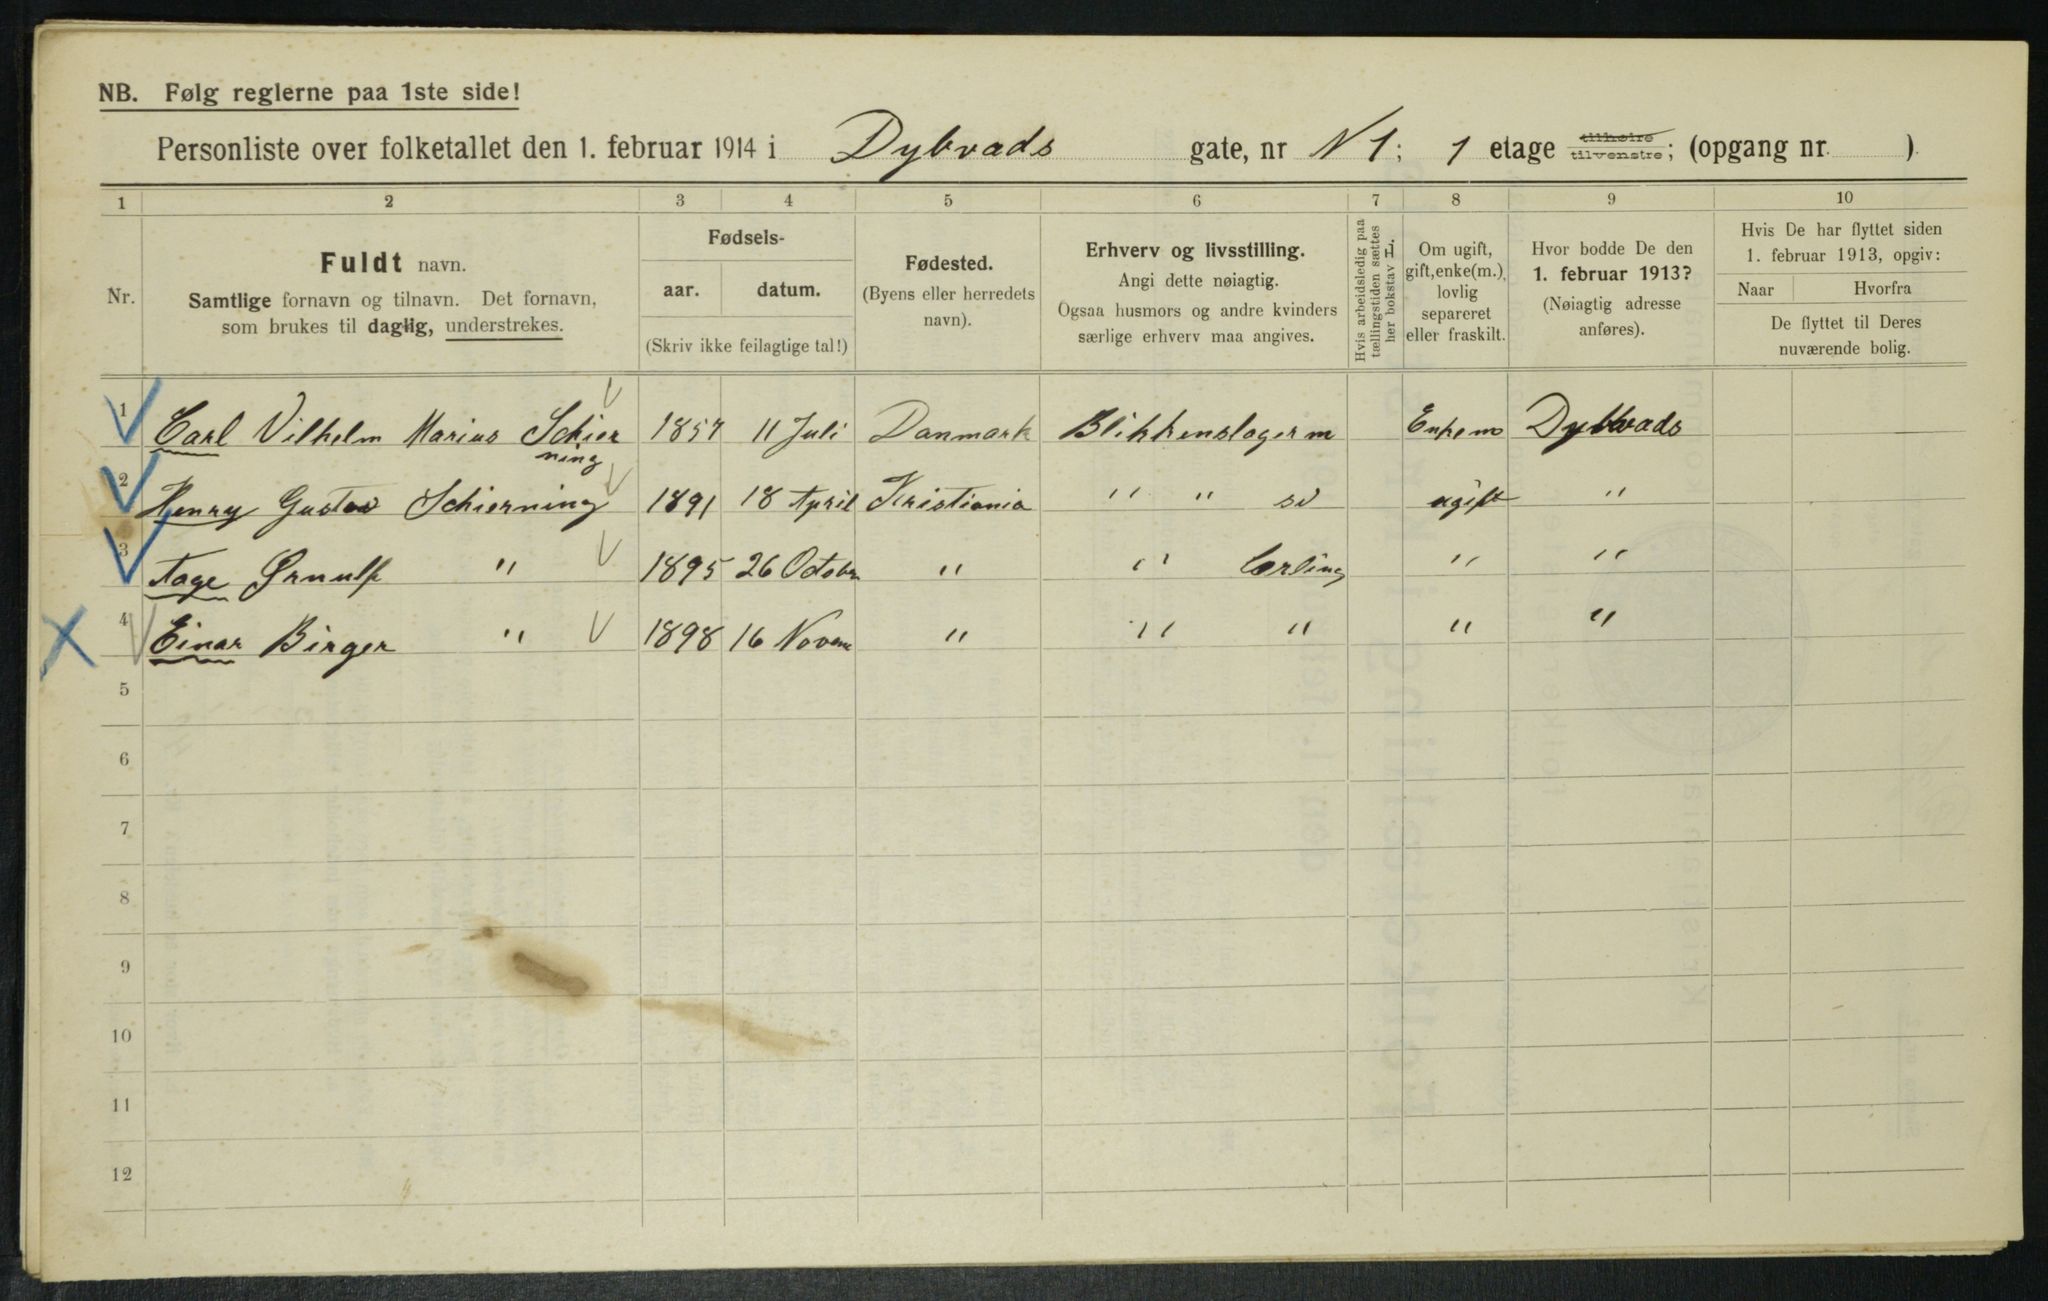 NB. Følg reglerne paa 1ste side!
Personliste over folketallet den 1. februar 1914 i Dybvads gate, nr N 1; 1 etage tilhøire tilvenstre; (opgang nr. )
1 2 3 4 5 6 7 8 9 10
Nr.
Fuldt navn.
Samtlige fornavn og tilnavn. Det fornavn,
som brukes til daglig, understrekes.
Fødsels-
aar. datum.
(Skriv ikke feilagtige tal!)
Fødested.
(Byens eller herredets
navn).
Erhverv og livsstilling.
Angi dette nøiagtig.
Ogsaa husmors og andre kvinders
særlige erhverv maa angives.
Hvis arbeidsledig paa
tællingstiden sættes
her bokstav L.
Om ugift,
gift, enke(m.),
lovlig
separeret
eller fraskilt.
Hvor bodde De den
1. februar 1913?
(Nøiagtig adresse
anføres).
Hvis De har flyttet siden
1. februar 1913, opgiv:
Naar Hvorfra
De flyttet til Deres
nuværende bolig.
1 Carl Vilhelm Marius Schier 1857 11 Juli Danmark Blikkenslager m Enkem Dybvads
ning
2 Henry Gustav Schierning 1891 18 April Kristiania " " sv ugift "
3 Tage Ørnulf " 1895 26 Octobr " " "  "
4 Einar Birger " 1898 16 Novem " " " " "
5
6
7
8
9
10
11
12